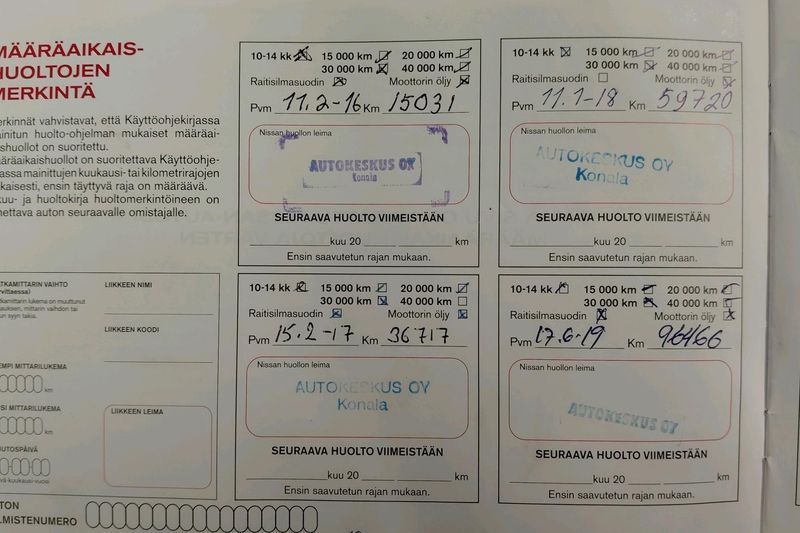 MÄÄRÄAIKAIS-
HUOLTOJEN
MERKINTÄ
erkinnät vahvistavat, että Käyttöohjekirjassa
ainitun huolto-ohjelman mukaiset määräai-
ishuollot on suoritettu.
ääräaikaishuollot on suoritettava Käyttöohje-
assa mainittujen kuukausi- tai kilometrirajojen
kaisesti, ensin täyttyvä raja on määräävä.
kuu- ja huoltokirja huoltomerkintöineen on
nettava auton seuraavalle omistajalle.
10-14 kk 15 000 km 20 000 km
30 000 km 40 000 km
Raitisilmasuodin Moottorin öljy
Pvm 11.2-16 Km 15031
Nissan huollon leima
AUTOKESKUS OY
Konala
SEURAAVA HUOLTO VIIMEISTÄÄN
kuu 20 km
Ensin saavutetun rajan mukaan.
10-14 kk 15 000 km 20 000 km
30 000 km 40 000 km
Raitisilmasuodin Moottorin öljy
Pvm 11.1-18 Km 59720
Nissan huollon leima
AUTOKESKUS OY
Konala
SEURAAVA HUOLTO VIIMEISTÄÄN
kuu 20 km
Ensin saavutetun rajan mukaan.
10-14 kk 15 000 km 20 000 km
30 000 km 40 000 km
Raitisilmasuodin Moottorin öljy
Pvm 15.2-17 Km 36717
Nissan huollon leima
AUTOKESKUS OY
Konala
SEURAAVA HUOLTO VIIMEISTÄÄN
kuu 20 km
Ensin saavutetun rajan mukaan.
10-14 kk 15 000 km 20 000 km
30 000 km 40 000 km
Raitisilmasuodin Moottorin öljy
Pvm 17.6-19 Km 96466
Nissan huollon leima
AUTOKESKUS OY
SEURAAVA HUOLTO VIIMEISTÄÄN
kuu 20 km
Ensin saavutetun rajan mukaan.
TKAMITTARIN VAIHTO
rvittaessa)
LIIKKEEN NIMI
LIIKKEEN KOODI
EMPI MITTARILUKEMA
km
SI MITTARILUKEMA
km
LIIKKEEN LEIMA
UUTOSPÄIVÄ
vä-kuukausi-vuosi
TON
LMISTENUMERO